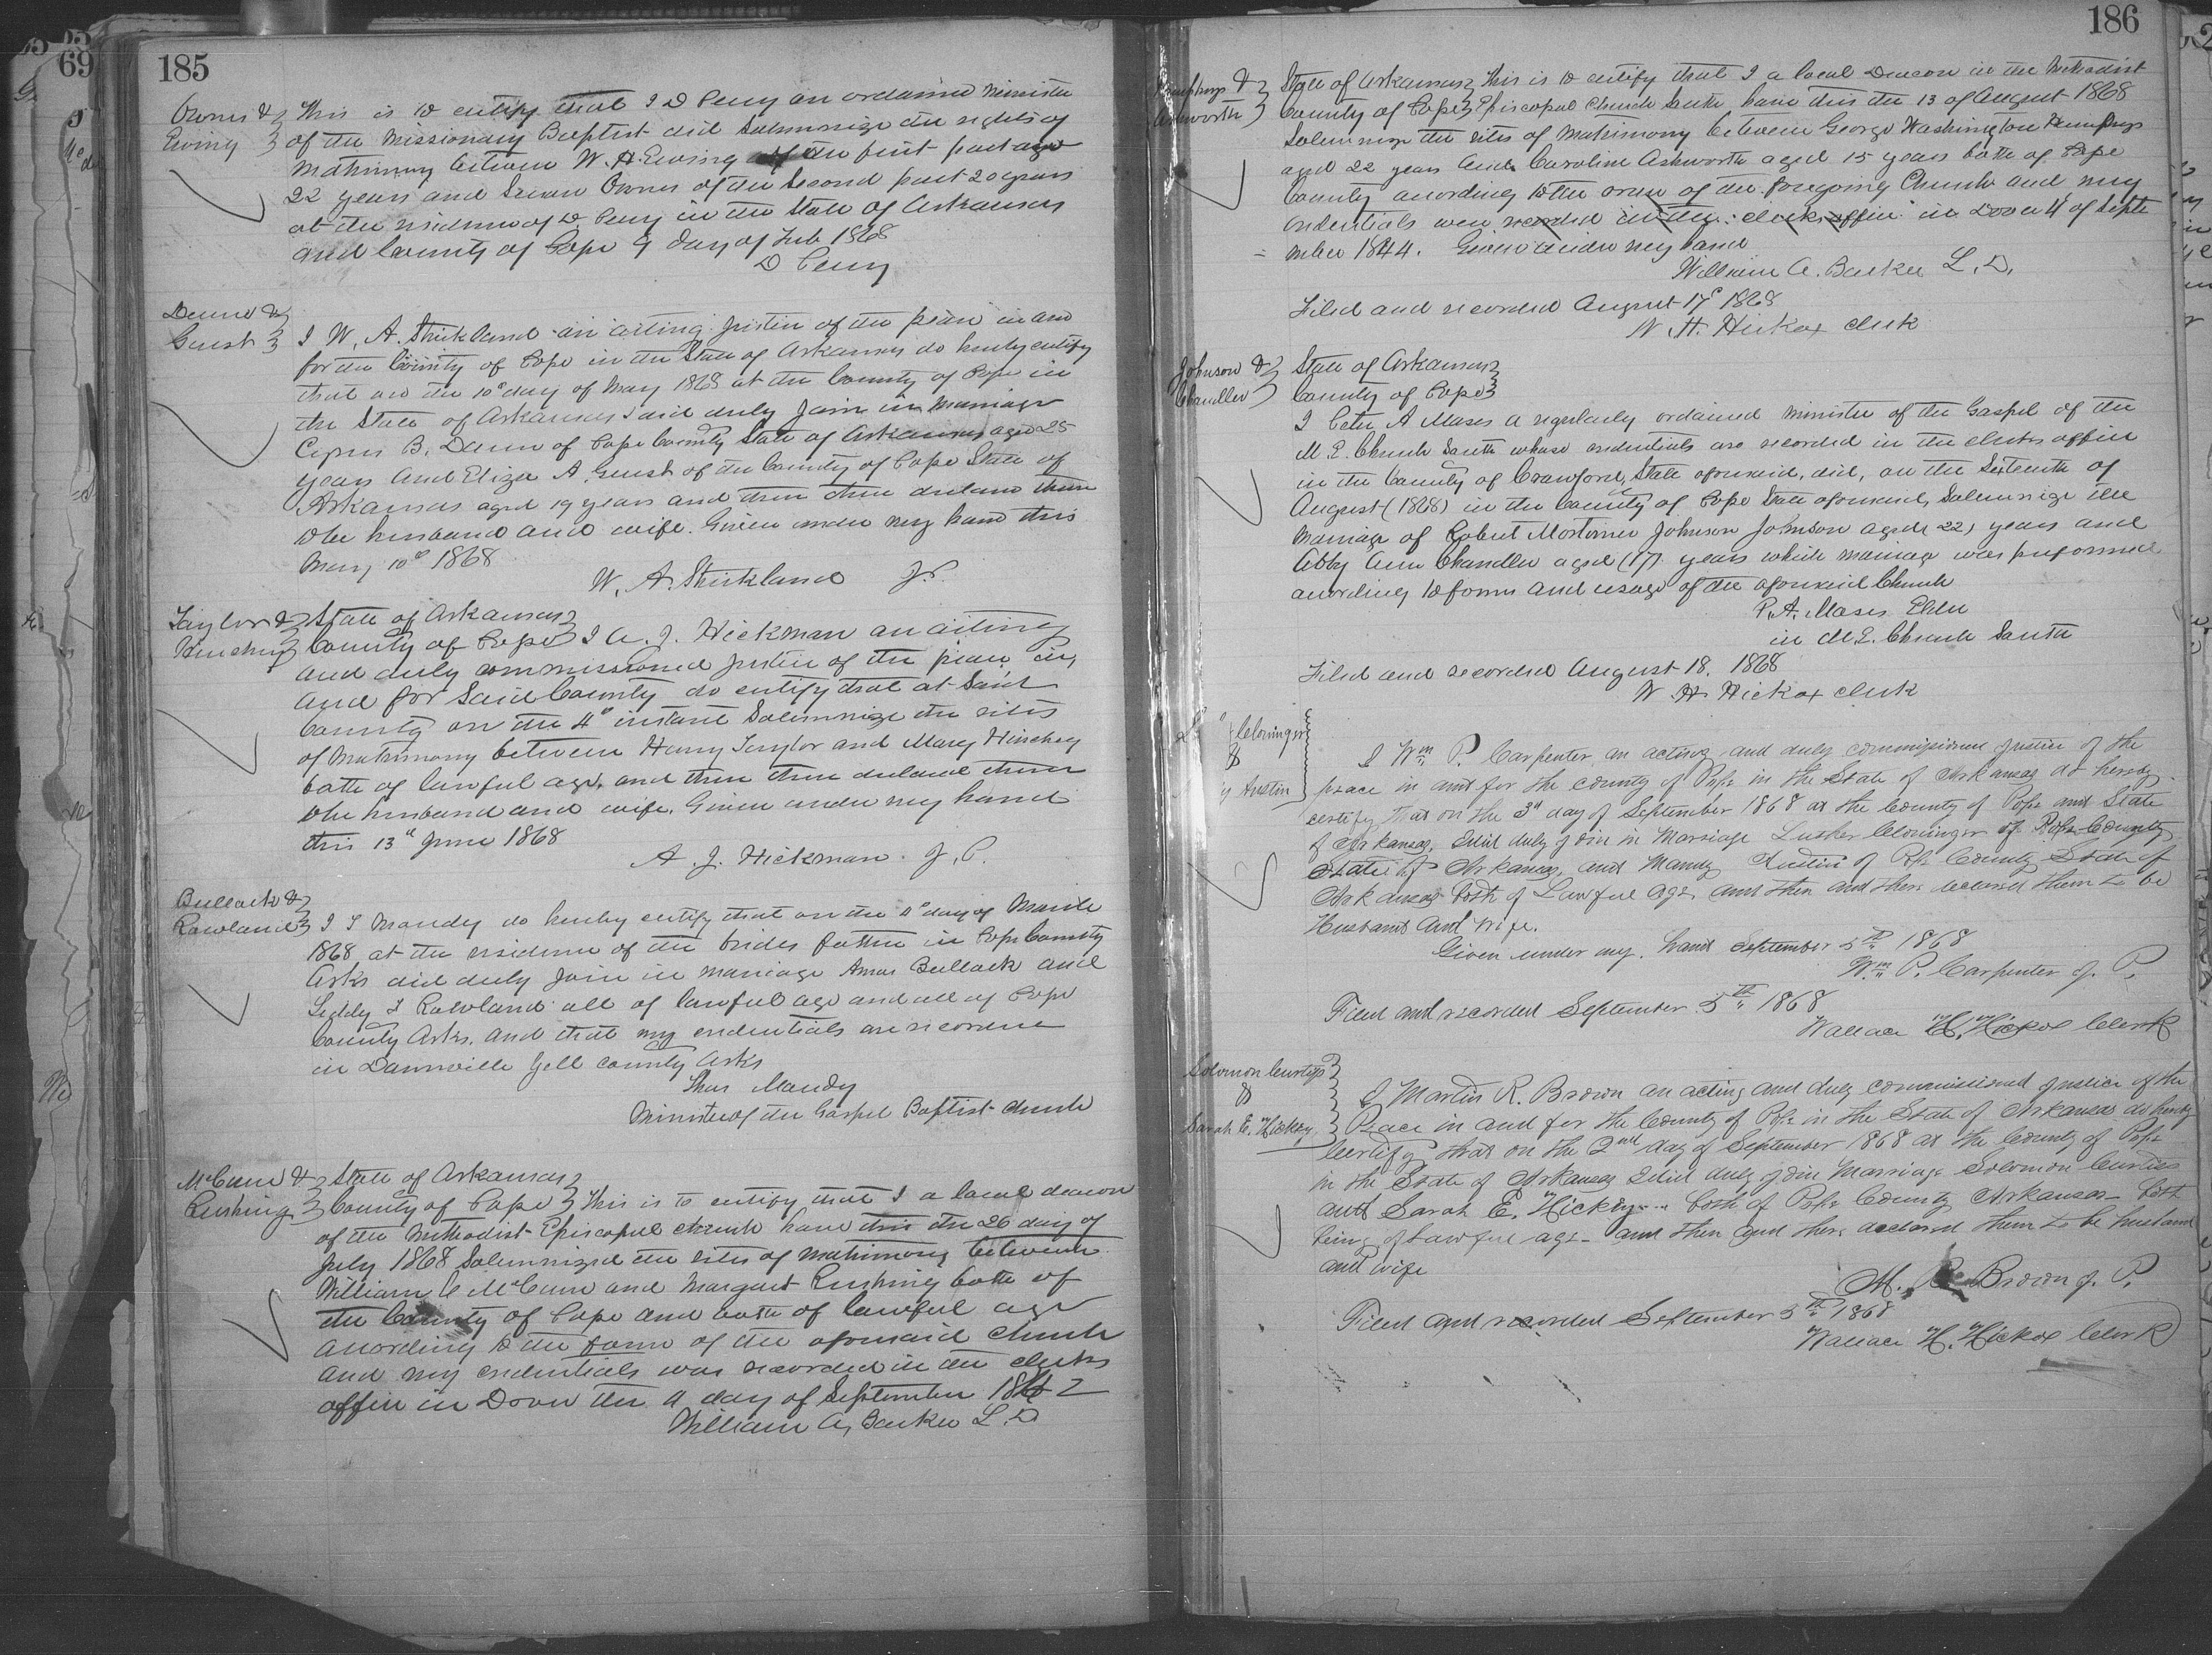 185
Owens &
Ewing
This is to certify that I D Perry an ordained minister
of the Missionary Baptist did Solemnize the rights of
Matrimony between W. H. Ewing of the first part age
22 years and Owens of the Second part 20 years
at the residence of D. Perry in the State of Arkansas
and County of Pope 9 day of Feb 1868
D Perry
Dunn &
Guest
I W. A. Strickland an acting Justice of the peace in and
for the County of Pope in the State of Arkansas do hereby certify
that on the 10th day of May 1868 at the County of Pope in
the State of Arkansas I did duly Join in Marriage
B. Dunn of Pope County State of Arkansas aged 25
years and Eliza A. Guest of the County of Pope State of
Arkansas aged 19 years and then there declare them
to be husband and wife. Given under my hand this
May 10th 1868
W. A. Strickland J.P.
Taylor &
Hinchey
State of Arkansas
County of Pope I A. J. Hickman an acting
and duly commissioned Justice of the peace in
and for Said County do certify that at Said
County on the 4th instant Solemnize the rites
of Matrimony between Harry Taylor and Mary Hinchey
both of lawful age, and then there declared them
to be husband and wife. Given under my hand
this 13th June 1868
A. J. Hickman. J. P.
Bullock &
Rowland
I T Mandy do hereby certify that on the 4th day of March
1868 at the residence of the brides father in Pope County
Arks did duly Join in marriage Amos Bullock and
Liddy T Rowland all of lawful age and all of Pope
County Arks. and that my credentials are recorded
in Danville Yell county Arks
Thos Mandy
Minister of the Gospel Baptist Church
McCune &
Rushing
State of Arkansas
County of Pope This is to certify that I a local deacon
of the Methodist Episcopal church have this the 26 day of
July 1868 Solemnized the rites of matrimony between
William C McCune and Margaret Rushing both of
the County of Pope and both of lawful age
according to the form of the aforesaid church
and my credentials was recorded in the clerks
office in Dover the 4 day of September 1842
William A, Barker L. D
186
Humphreys &
Ashworth
State of Arkansas This is to certify that I a local Deacon in the Methodist
County of Pope Episcopal Church South have this the 13 of August 1868
Solemnize the rites of Matrimony between George Washington Humphreys
aged 22 years and Caroline Ashworth aged 15 years both of Pope
County according to the order of the foregoing Church and my
credentials were recorded in the clerks office in Dover 4 of Septe
mber 1844. Given under my hand
William A. Barker L. D.
Filed and recorded August 17th 1868
W. H. Hickox clerk
Johnson &
Chandler
State of Arkansas
County of Pope
I Peter A Moses a regularly ordained minister of the Gospel of the
M. E. Church South whose credentials are recorded in the clerks office
in the County of Crawford, State aforesaid, did, on the Sixteenth of
August (1868) in the County of Pope State aforesaid, Solemnize the
Marriage of Robert Mortimer Johnson Johnson aged 22) years and
Abby Ann Chandler aged (17) years which marriage was performed
according to forms and usage of the aforesaid Church
P. A. Moses Elder
in M. E. Church South
Filed and recorded August 18. 1868
W H Hickox clerk
Cloninger
&
Austin
I Wm P. Carpenter, an acting and duly commissioned Justice of the
peace in and for the county of Pope in the State of Arkansas do hereby
certify that on the 3d day of September 1868 at the County of Pope and State
of Arkansas, I did duly join in Marriage Luther Cloninger of Pope County
State of Arkansas, and Austin of Pope County State of
Arkansas both of Lawful age, and then and there declared them to be
Husband and Wife.
Given under my hand September 5th 1868
Wm P. Carpenter J. P.
Filed and recorded September 5th 1868
Wallace H. Hickox Clerk
Solomon Curtiss
&
Sarah E. Hickey
I Martin R. Brown an acting and duly commissioned Justice of the
Peace in and for the County of Pope in the State of Arkansas do hereby
Certify that on the 2nd day of September 1868 at the County of Pope
in the State of Arkansas I did duly join Marriage Solomon Curtiss
and Sarah E. Hickey both of Pope County Arkansas both
being of Lawful age and then and there declared them to be husband
and wife
M. R. Brown J. P.
Filed and recorded September 5th 1868
Wallace H. Hickox Clerk